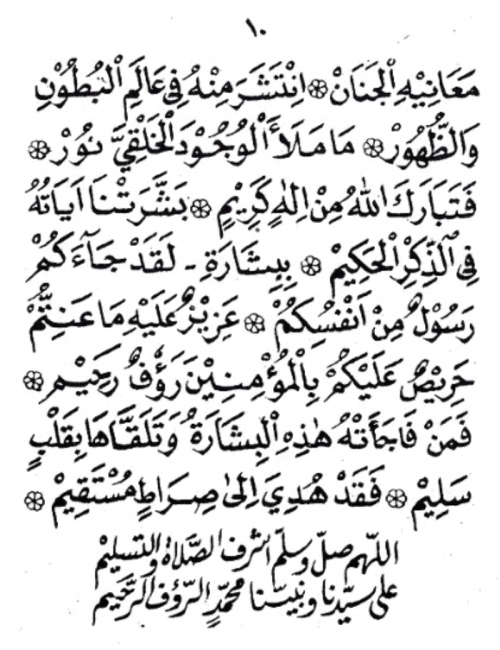 ١٠
مَعَانِيْهِ الْجَنَانْ ۞ اِنْتَشَرَ مِنْهُ فِيْ عَالَمِ الْبُطُوْنِ
وَالظُّهُوْرْ ۞ مَا مَلَأَ الْوُجُوْدَ الْخَلْقِيَّ نُوْرْ ۞
فَتَبَارَكَ اللهُ مِنْ اِلٰهٍ كَرِيْمٍ ۞ بَشَّرَتْنَا اٰيَاتُهُ
فِي الذِّكْرِ الْحَكِيْمْ ۞ بِبِشَارَةِ - لَقَدْ جَآءَكُمْ
رَسُوْلٌ مِنْ اَنْفُسِكُمْ ۞ عَزِيْزٌ عَلَيْهِ مَا عَنِتُّمْ
حَرِيْصٌ عَلَيْكُمْ بِالْمُؤْمِنِيْنَ رَؤُفٌ رَحِيْمٌ ۞
فَمَنْ فَاجَأَتْهُ هٰذِهِ الْبِشَارَةُ وَتَلَقَّاهَا بِقَلْبٍ
سَلِيْمْ ۞ فَقَدْ هُدِيَ اِلىٰ صِرَاطٍ مُسْتَقِيْمْ ۞
اللّهم صلّ وسلّم اشرف الصّلاة والتسليم
على سيّدنا ونبيّنا محمّدٍ الرّؤف الرّحيم